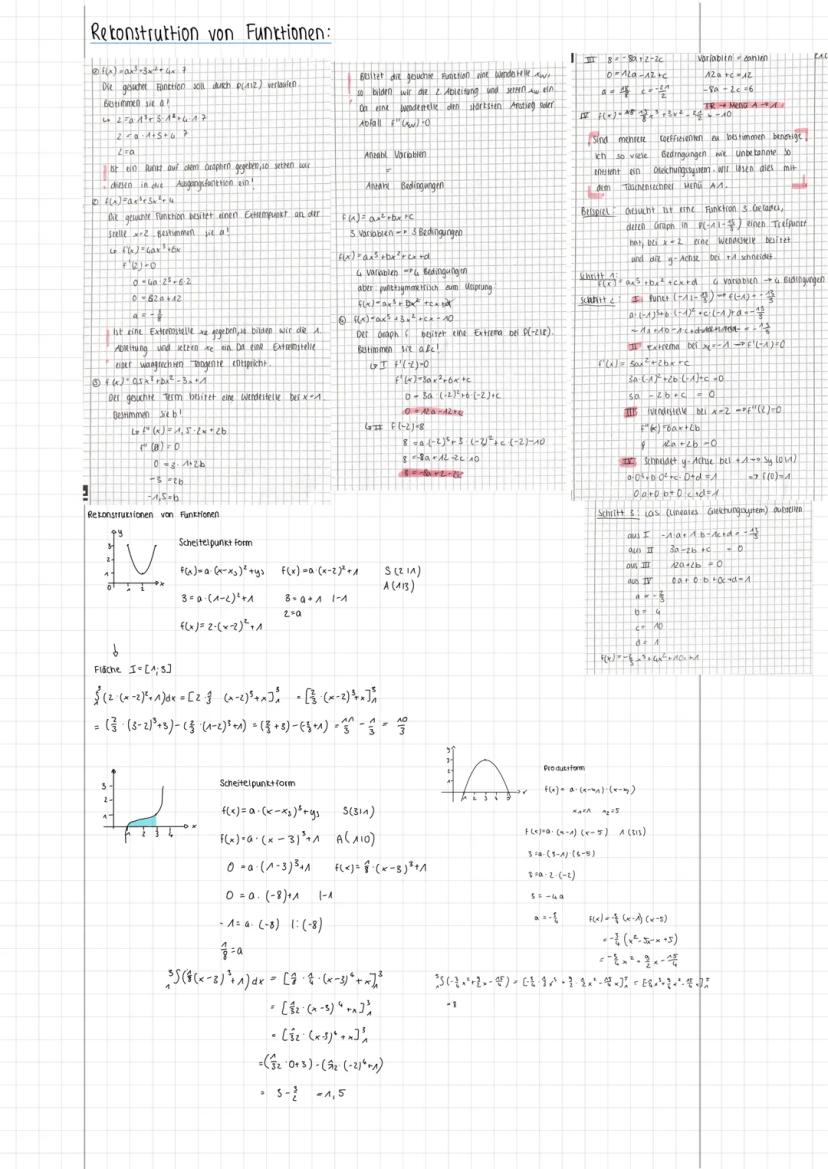 Rekonstruktion von Funktionen:
Die gesuchte Funktion soll durch P(1|2) verlaufen.
Bestimmen sie a!
2=a
Ist ein Punkt auf dem Graphen gegeben, so setzen wir
diesen in die Ausgangsfunktion ein!
Die gesuchte Funktion besitzt einen Extrempunkt an der
Stelle x=2. Bestimmen sie a!
f'(2)=0
Ist eine Extremstelle xe gegeben, so bilden wir die 1.
Ableitung und setzen xe ein. Da eine Extremstelle
einer waagrechten Tangente entspricht.
③ f(x)=0,5x³+bx²-3x+1
Der gesuchte Term besitzt eine Wendestelle bei x=1.
Bestimmen Sie b!
0=3·1+2b
-3=2b
-1,5=b
Besitzt die gesuchte Funktion eine Wendestelle xw,
so bilden wir die 2. Ableitung und setzen xw ein
Da eine Wendestelle den stärksten Anstieg oder
Abfall f''(xw)=0
Anzahl Variablen
=
Anzahl Bedingungen
f(x)=ax²+bx+c
3 Variablen → 3 Bedingungen
f(x)=ax³+bx²+cx+d
4 Variablen → 4 Bedingungen
aber punktsymmetrisch zum Ursprung
Der Graph f besitzt eine Extrema bei P(-2|8).
Bestimmen sie a&c!
↳ I f'(-2)=0
f'(x)=3ax²+6x+c
0=3a·(-2)²+6·(-2)+c
0=12a-12+c
↳ II f(-2)=8
8=a·(-2)³+3·(-2)²+c·(-2)-10
8=-8a+12-2c-10
8=-8a+2-2c
III 8=-8a+2-2c Variablen = Zahlen
0=12a-12+c 12a+c=12
-8a-2c=6
TR → Menü A → 1
Sind mehrere Coefficienten zu bestimmen benötige
ich so viele Bedingungen wie Unbekannte. So
entsteht ein Gleichungssystem. Wir lösen dies mit
dem Taschenrechner Menü A1.
Beispiel: Gesucht ist eine Funktion 3. Grades,
hat, bei x=2 eine Wendestelle besitzt
und die y-Achse bei +1 schneidet.
Schritt 1:
f(x)=ax³+bx²+cx+d 4 Variablen → 4 Bedingungen
Schritt 2: I Punkt (-1|-13/3) → f(-1)=-13/3
a·(-1)³+b·(-1)²+c·(-1)+d=-13/3
II Extrema bei xe=-1 → f'(-1)=0
f'(x)=3ax²+2bx+c
3a·(-1)²+2b·(-1)+c=0
3a-2b+c=0
III Wendestelle bei x=2 → f''(2)=0
f''(x)=6ax+2b
12a+2b=0
IV Schneidet y-Achse bei +1 → Sy(0|1)
a·0³+b·0²+c·0+d=1 ⇒ f(0)=1
0a+0b+0c+d=1
Schritt 3: LGS (Lineares Gleichungssystem) aufstellen
aus I -1a+1b-1c+d=-13/3
aus II 3a-2b+c=0
aus III 12a+2b=0
aus IV 0a+0·b+0c+d=1
a=-2/3
b=4
c=10
d=1
f(x)=-2/3x³+4x²+10x+1
Rekonstruktionen von Funktionen
Scheitelpunktform
f(x)=a·(x-xs)²+ys f(x)=a·(x-2)²+1 S(2|1)
A(1|3)
3=a·(1-2)²+1 3=a+1 |-1
2=a
f(x)=2·(x-2)²+1
Fläche I=[1;3]
₁³∫(2·(x-2)²+1)dx=[2·1/3·(x-2)³+x]₁³=[2/3·(x-2)³+x]₁³
=(2/3·(3-2)³+3)-(2/3·(1-2)³+1)=(2/3+3)-(-2/3+1)=11/3-1/3=10/3
Scheitelpunktform
f(x)=a·(x-xs)³+ys S(3|1)
f(x)=a·(x-3)³+1 A(1|0)
0=a·(1-3)³+1 f(x)=1/8·(x-3)³+1
0=a·(-8)+1 |-1
-1=a·(-8) |:(-8)
1/8=a
₁³∫(1/8(x-3)³+1)dx=[1/8·1/4·(x-3)⁴+x]₁³
=[1/32·(x-3)⁴+x]₁³
=[1/32·(x-3)⁴+x]₁³
=(1/32·0+3)-(1/32·(-2)⁴+1)
=3-3/2=1,5
Produktform
f(x)=a·(x-x1)·(x-x2)
x1=1 x2=5
f(x)=a·(x-1)·(x-5) A(3|3)
3=a·(3-1)·(3-5)
3=a·2·(-2)
3=-4a
a=-3/4 f(x)=-3/4(x-1)(x-5)
=-3/4(x²-5x-x+5)
=-3/4x²+9/2x-15/4
=8